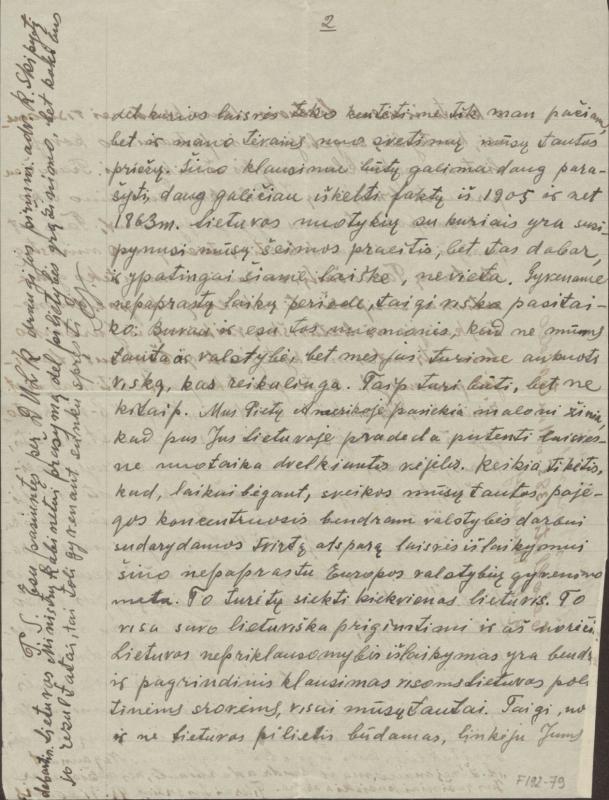 2
det kurios laisvės teko kentėti ne tik man pačiam,
bet ir mano tėvams nuo svetimų mūsų tautos
priešų. Šiuo klausimu būtų galima daug para-
šyti, daug galėčiau iškelti faktų iš 1905 ir net
1863m. Lietuvos nuotykių su kuriais yra susi-
pynusi mūsų šeimos praeitis, bet tas dabar,
ir ypatingai šiame laiške, nevieta. Gyvename
nepaprastų laikų periode, taigi visko pasitai-
ko. Buvau ir esu tos nuomonės, kad ne mums
tauta ar valstybė, bet mes jai turime aukoti
viską, kas reikalinga. Taip turi būti, bet ne
kitaip. Mus Pietų Amerikoje pasiekia maloni žinia,
kad pas Jus Lietuvoje pradeda putenti laisves-
nė nuotaika dvelkiantis vėjelis. Reikia tikėtis,
kad, laikui bėgant, sveikos mūsų tautos pajė-
gos koncentruosis bendram valstybės darbui
sudarydamos tvirtą atsparą laisvės išlaikymui
šiuo nepaprastu Europos valstybių gyvenimo
metu. To turėtų siekti kiekvienas lietuvis. To
visa savo lietuviška prigimtimi ir aš noriu.
Lietuvos nepriklausomybės išlaikymas yra bendr
ir pagrindinis klausimas visoms Lietuvos poli
tinėms srovėms, visai mūsų tautai. Taigi, no
ir ne Lietuvos pilietis būdamas, linkiu Jums
P. S. Esu pasiuntęs per D.U.L.R. draugijos pirmin. adv. R. Skipitį
Lietuvos Ministrų Kabinetui prašymą dėl pilietybės grąžinimo, bet koks bus
jo rezultatas, tai toli gyvenant sunku spręsti.
F192-79